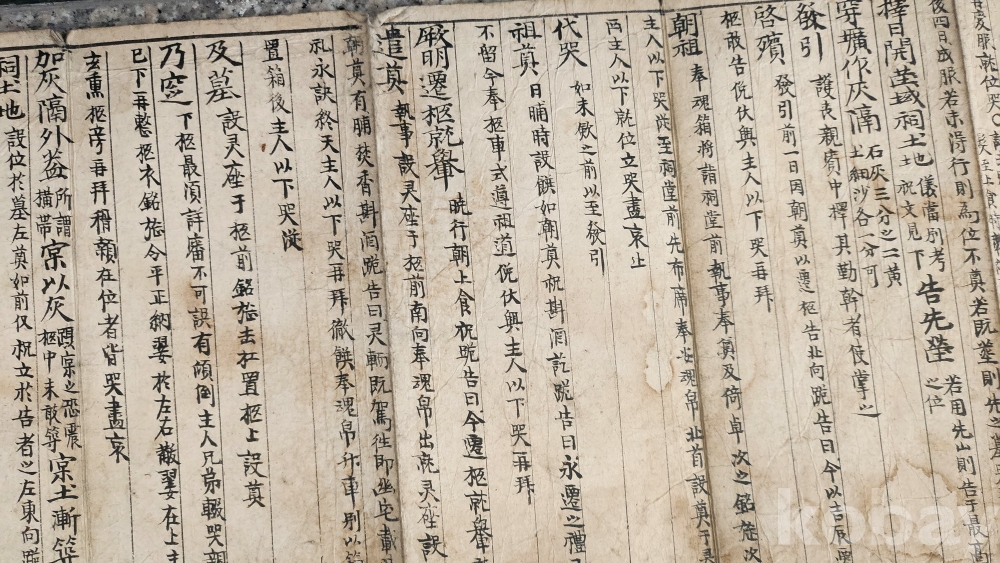 後四日成服若未得行則為位不奠若既葬則先之墓
擇日開茔域祠土地 儀當別考 祝文見下 告先塋 之位 若用先山則告于最高
穿壙作灰隔 石灰三分之二黃 土細沙各一分可
護丧親賓中擇其勤幹者使掌之
發引 發引前一日因朝奠以遷柩告北向跪告曰今以吉辰
啓殯
柩敢告俛伏興主人以下哭再拜
朝祖 奉魂箱將詣祠堂前執事奉奠及倚卓次之銘旌次
主人以下哭從至祠堂前先布席奉魂帛北首設奠于
両主人以下就位立哭盡哀止
代哭 如未斂之前以至發引
祖奠 日晡時設饌如朝奠祝斟酒訖跪告曰永遷之禮
不留今奉柩車式遵祖道俛伏興主人以下哭再拜
厥明遷柩就轝 既行朝上食祝跪告曰今遷柩就轝
遣奠 執事設灵座于柩前南向奉魂帛出就灵座設
朝奠有脯焚香斟酒跪告曰灵輀既駕往即幽宅載
礼永訣終天主人以下哭再拜徹饌奉魂帛升車別以箱
置箱後主人以下哭從
及墓 設灵座于柩前銘旌去杠置柩上設奠
乃窆 下柩最須詳審不可誤有傾倒主人兄弟輟哭親
已下再整柩衣銘旌令平正納翣於左右黻翣在上
玄熏柩旁再拜稽顙在位者皆哭盡哀
加灰隔外盖 所謂橫帶 宲以灰 柩中未敢築 宲土漸築
祠土地 設位於墓左奠如前仅祝立於告者之左東向跪
kobay